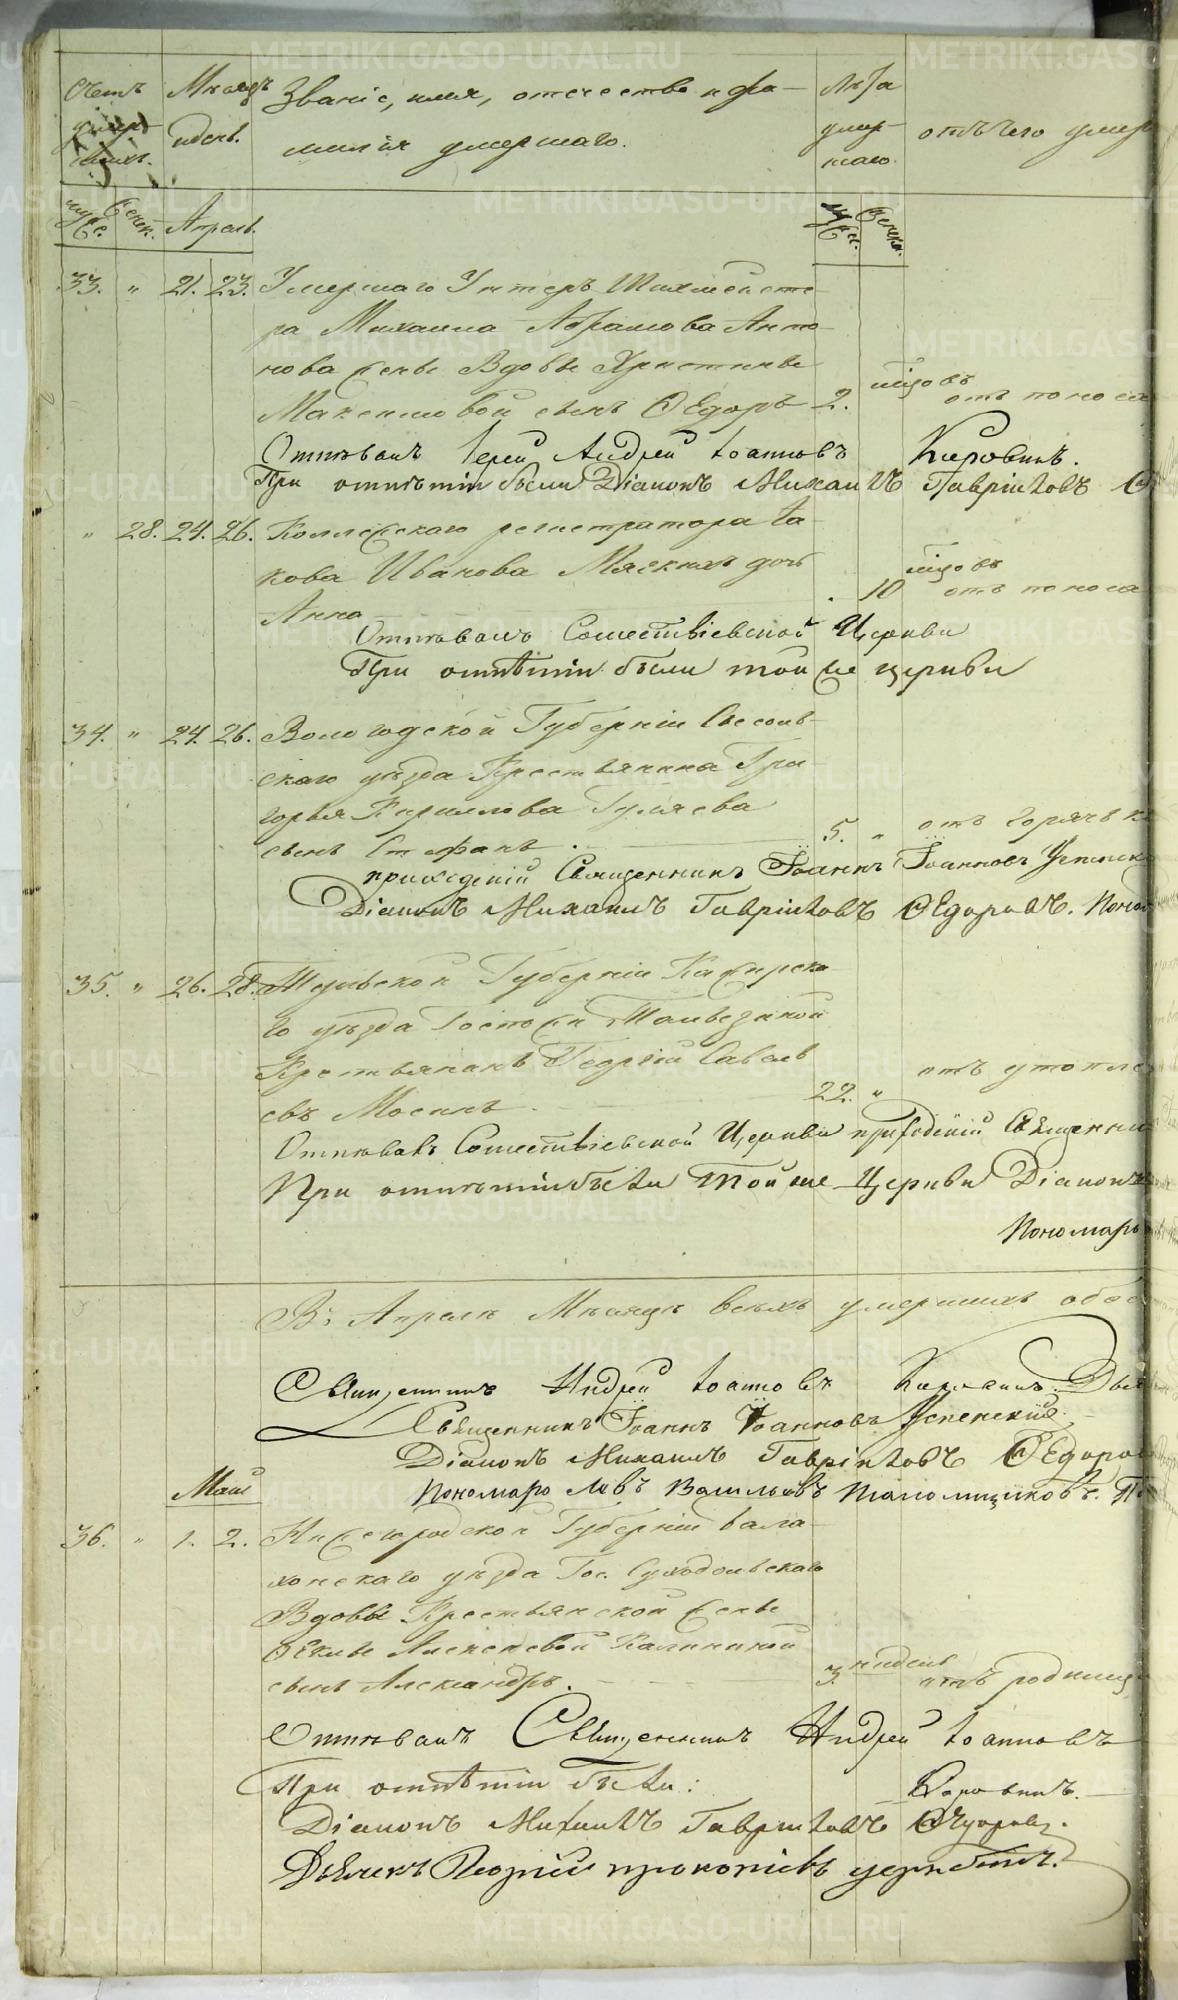 Счетъ Мѣсяцъ Званіе, имя, отечество и фа- Лѣта
умер- и день. милія умершаго. умер- отъ чего умер
шихъ. шаго.
муж. женск. Апрель. муж. женск.
33. " 21. 23. Умершаго Унтеръ Шихмейсте-
ра Михаила Абрамова Анто-
нова жены Вдовы Христины
Максимовой сынъ Ѳедоръ 2. мѣсяцовъ отъ поноса
Отпѣвалъ Іерей Андрей Іоанновъ
При отпѣтіи были Діаконъ Михаилъ Гавріиловъ
" 28. 24. 26. Коллежскаго регистратора Іа-
кова Иванова Мяскихъ дочь
Анна 10 мѣсяцовъ отъ поноса
Отпѣвалъ Сошествіевской Церкви
При отпѣтіи были той же церкви
34. " 24. 26. Вологодской Губерніи
скаго уѣзда Крестьянина Гри-
горья Кирилова Гуляева
сынъ Стефанъ. 5. " отъ горячк
приходскій Священникъ Іоаннъ Іоанновъ Успенск
Діаконъ Михаилъ Гавріиловъ Ѳедоровъ. Поном
35. " 26. 28. Тульской Губерніи Каширска
го уѣзда Госпожи
Крестьянинъ Георгій Савель
евъ Мосинъ. 22. " отъ утопле
Отпѣвалъ Сошествіевской Церкви приходскій Священни
При отпѣтіи были той же Церкви Діаконъ
Пономарь
Въ Апрелѣ Мѣсяцѣ всѣхъ умершихъ обое
Священникъ Андрей Іоанновъ
Священникъ Іоаннъ Іоанновъ Успенскій
Діаконъ Михаилъ Гавріиловъ Ѳедоров
Май Пономарь Левъ Васильевъ
36. " 1. 2. Нижегородской Губерніи Бала-
хонскаго уѣзда Гос. Суходольскаго
Вдовы Крестьянской жены
Ѳеклы Алексѣевой Калининой
сынъ Александръ. 3. недель отъ родимц
Отпѣвалъ Священникъ Андрей Іоанновъ
При отпѣтіи были:
Діаконъ Михаилъ Гавріиловъ Ѳедоровъ.
Дьячекъ Георгій Прокопіевъ
METRIKI.GASO-URAL.RU